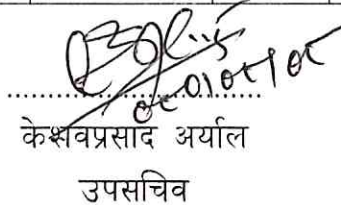 केशवप्रसाद अर्याल
उपसचिव